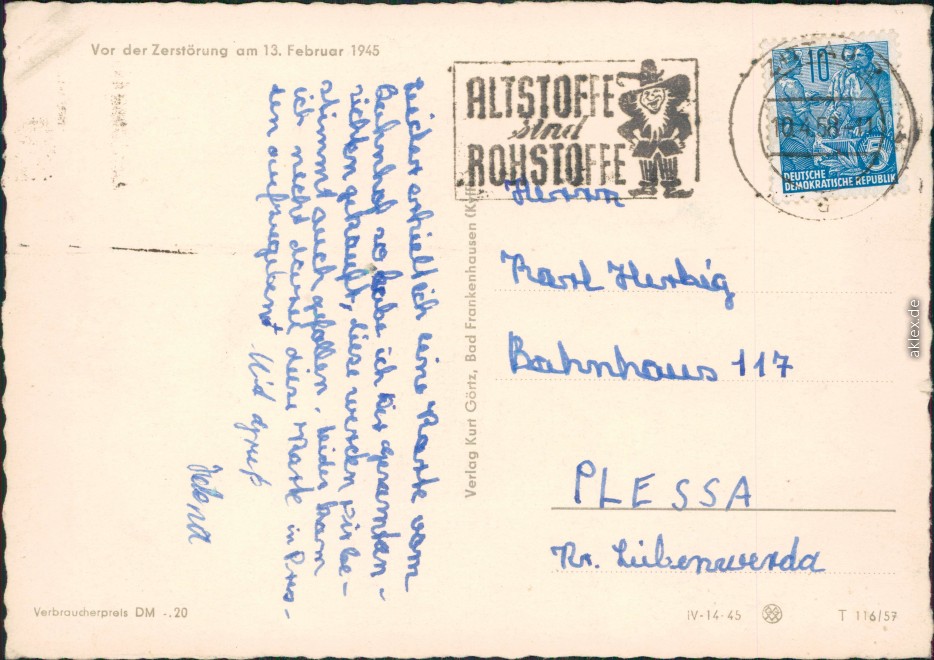 Vor der Zerstörung am 13. Februar 1945
ALTSTOFFE
sind
ROHSTOFFE
10.4.58-11
10
5
DEUTSCHE
DEMOKRATISCHE REPUBLIK
Leider erhielt ich eine Karte vom
Bahnhof so habe ich hier
gekauft, diese werden
stimmt auch gefallen. Leider kann
ich nicht damit diese Karte in
den aufgegeben
Mit Gruß
Herrn
Karl Herbig
Bahnhaus 117
PLESSA
Kr. Liebenwerda
Verlag Kurt Görtz, Bad Frankenhausen
Verbraucherpreis DM -.20
IV-14-45
T 116/57
aklex.de